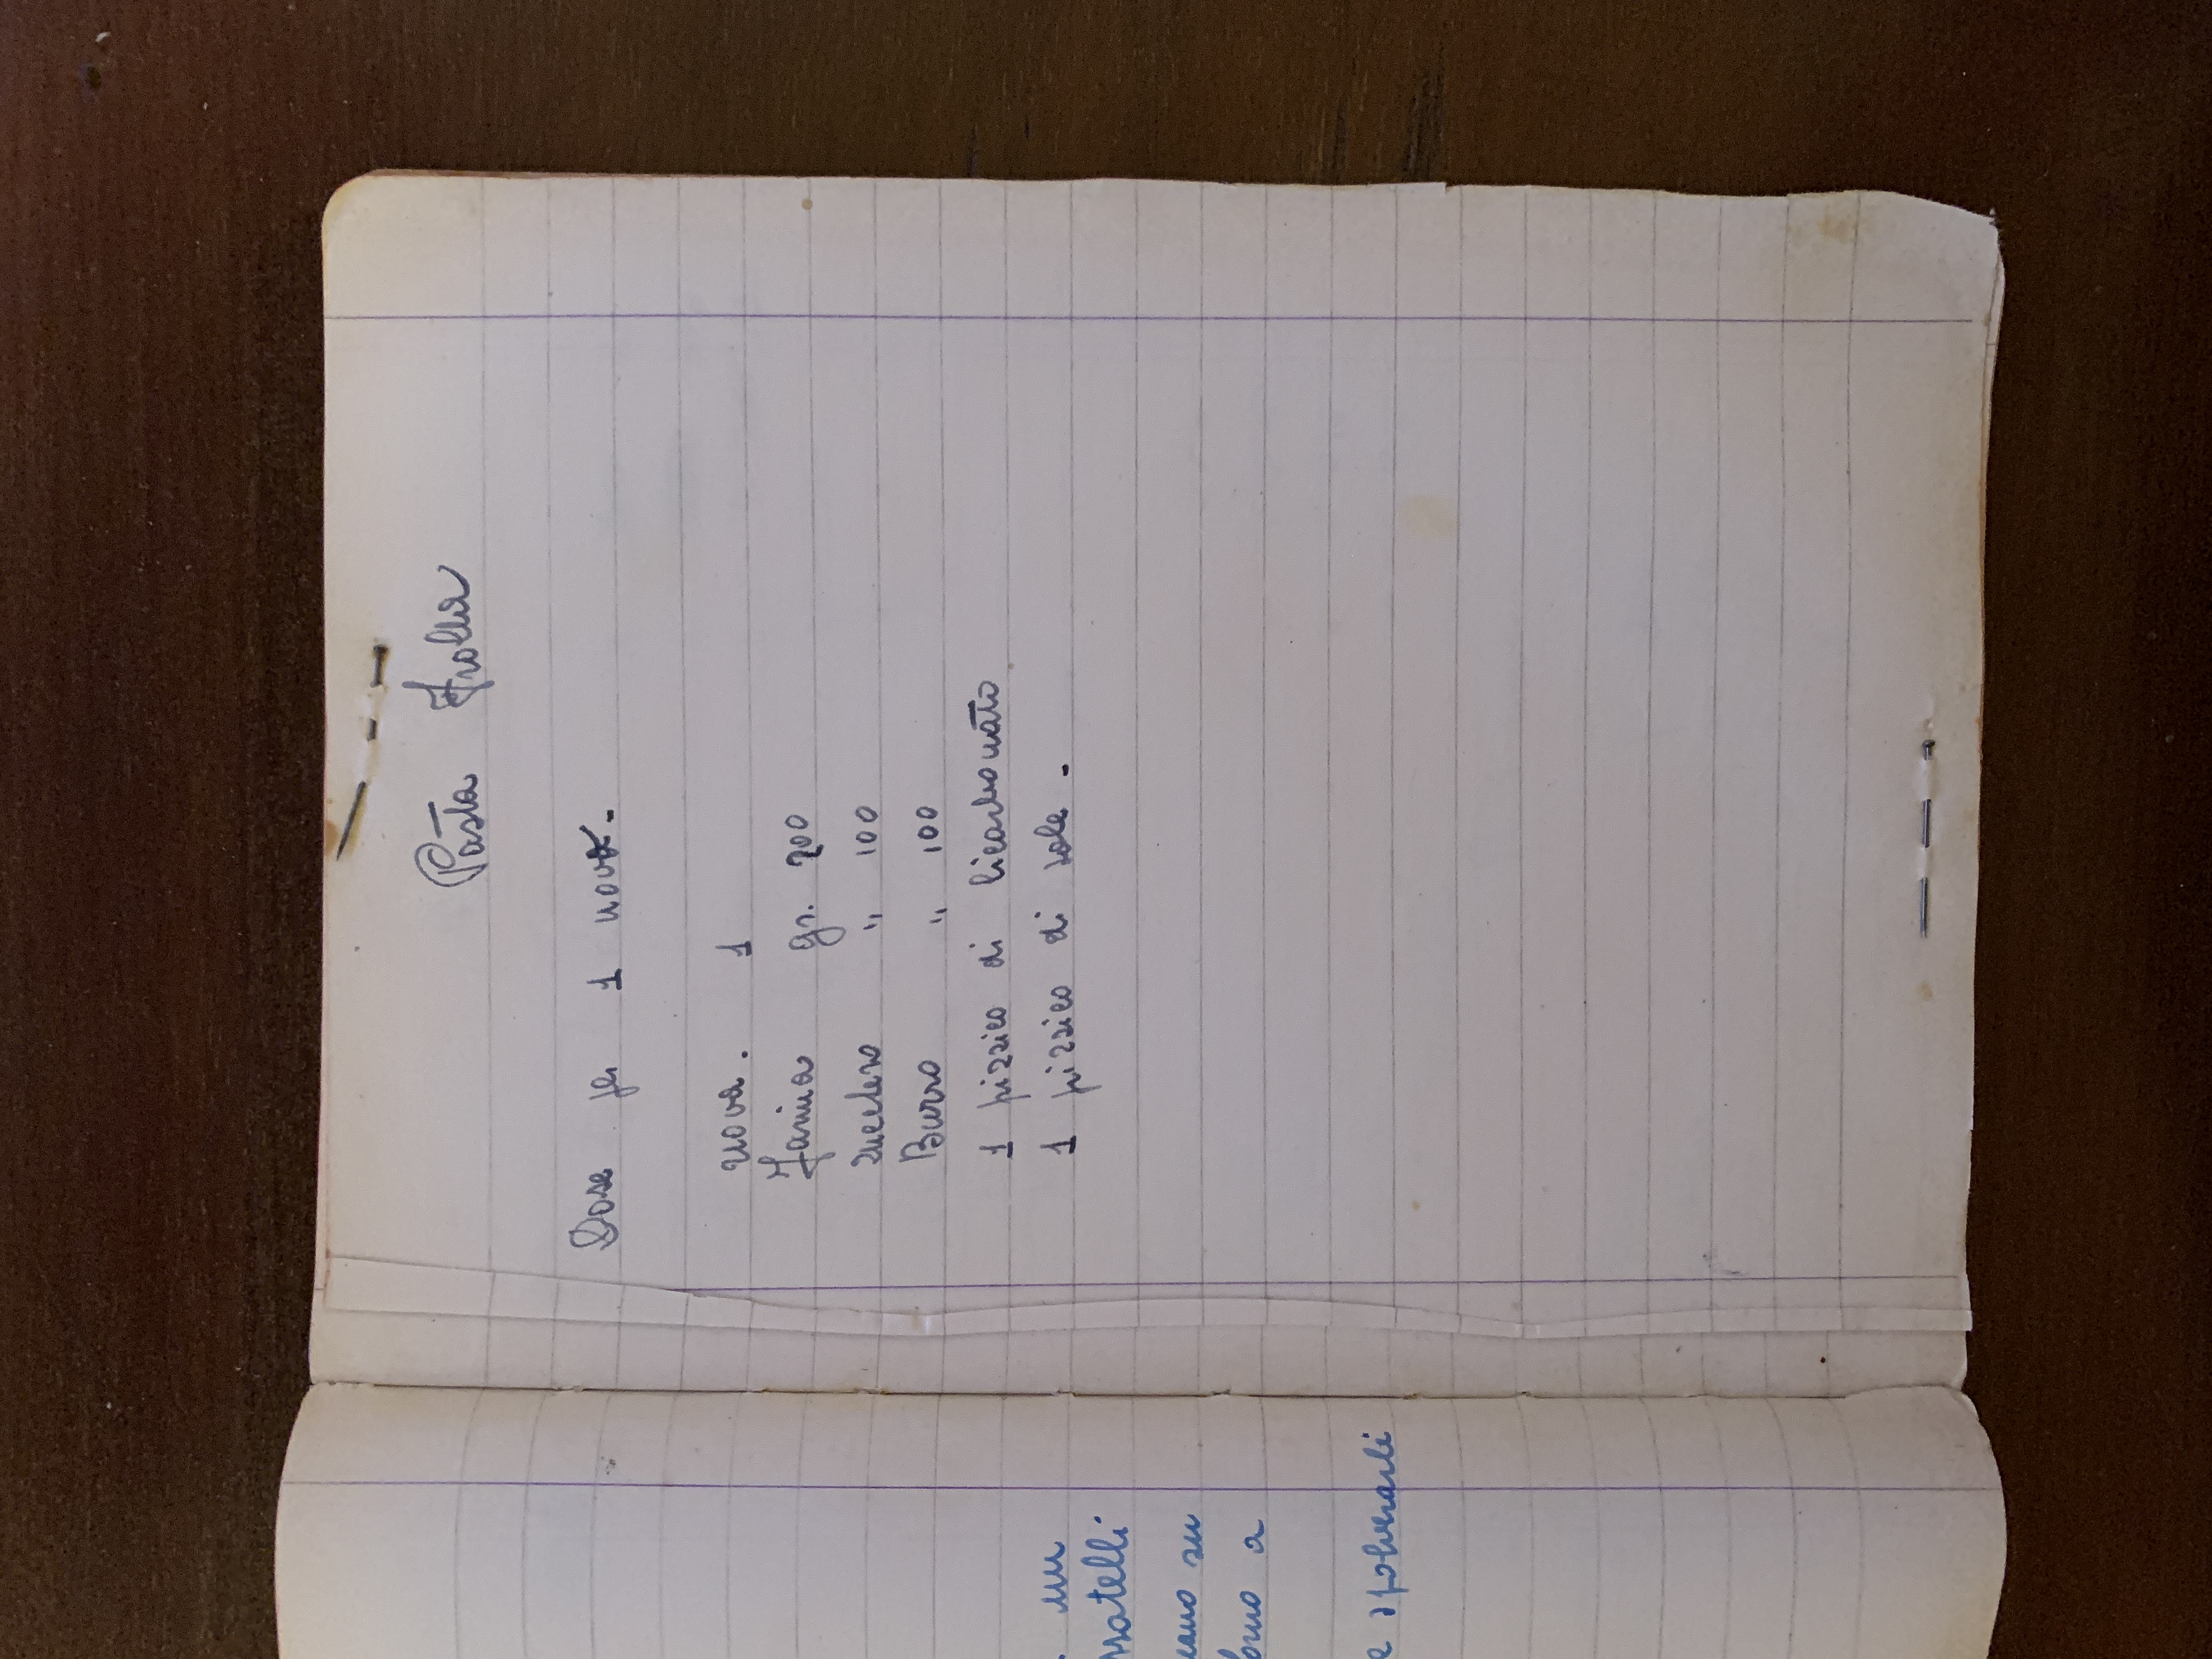 . un
ssatelli
cano su
forno a
e spolverarli
Pasta Frolla
Dose per 1 uovo.-
uova. 1
Farina gr. 200
zucchero " 100
Burro " 100
1 pizzico di bicarbonato
1 pizzico di sale -